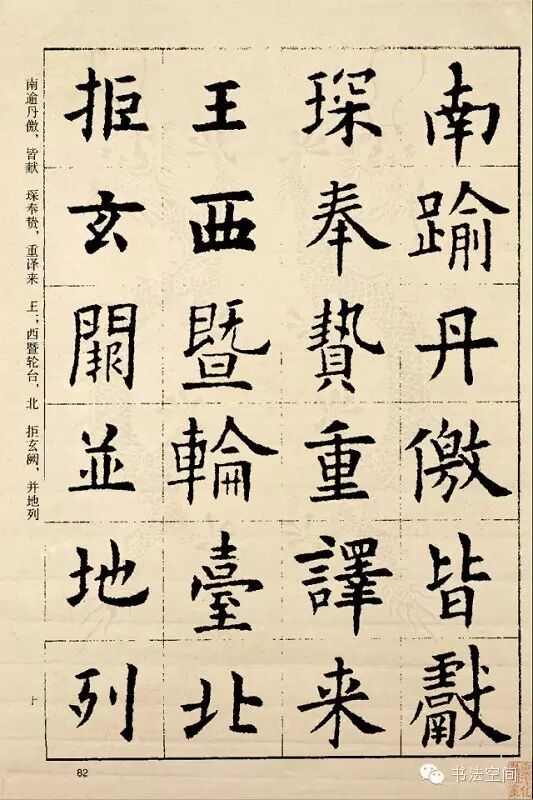 南踰丹儌皆獻
琛奉贄重譯来
王西暨輪臺北
拒玄闕並地列
南逾丹儌，皆献 琛奉贽，重译来 王；西暨轮台，北 拒玄阙，并地列
十
82
书法空间